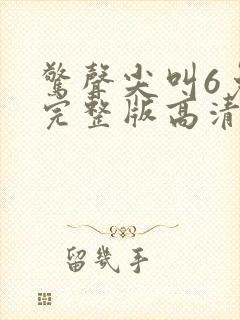 驚聲尖叫6免
完整版高清
留幾手